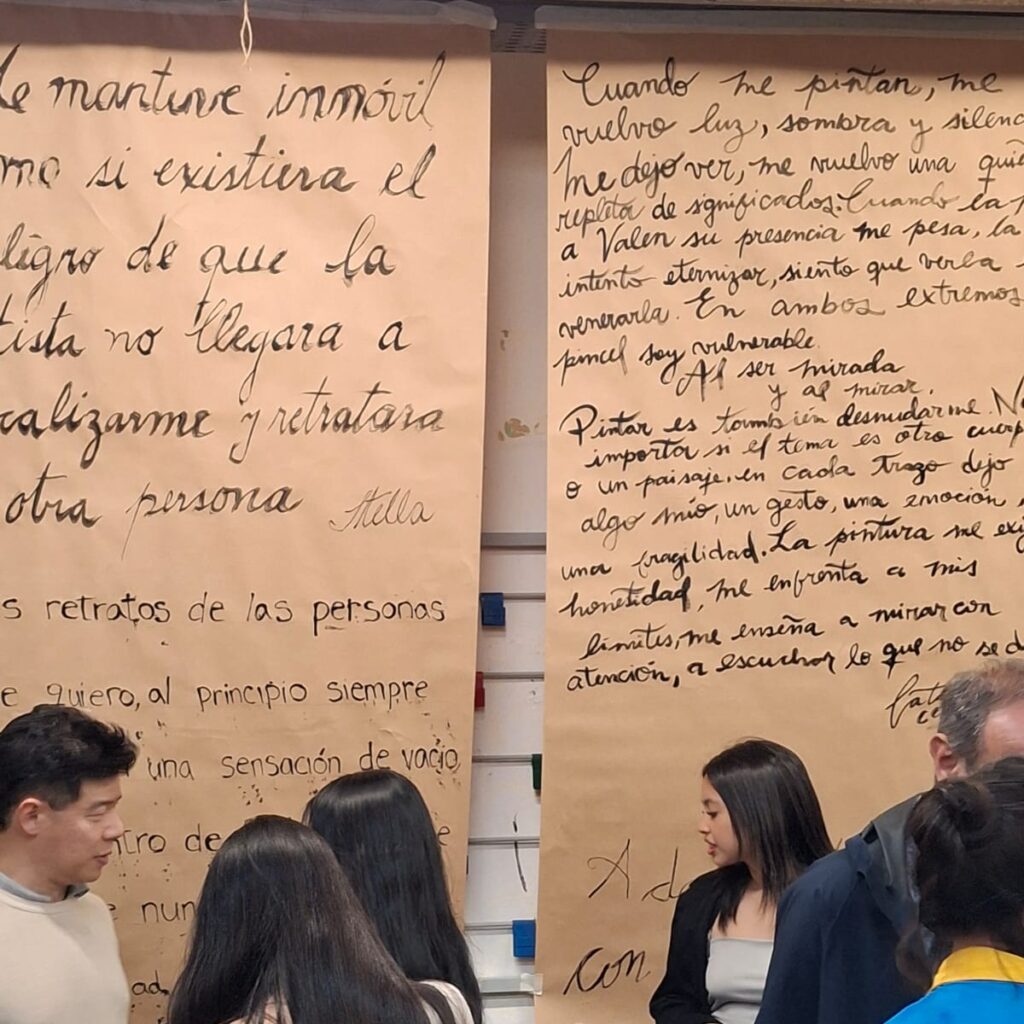 Me mantuve inmóvil
como si existiera el
peligro de que la
artista no llegara a
y retratara
otra persona Stella
retratos de las personas
quiero, al principio siempre
una sensación de vacío
de
Cuando me pintan, me
vuelvo luz, sombra y silenc
Me dejo ver, me vuelvo una
repleta de significados. Cuando la
a Valen su presencia me pesa, la
intento eternizar, siento que verla
venerarla. En ambos extremos
pincel soy vulnerable.
Al ser mirada
y al mirar.
Pintar es también desnudarme. No
importa si el tema es otro cuerp
o un paisaje, en cada trazo dejo
algo mío, un gesto, una emoción
una fragilidad. La pintura me exi
honestidad, me enfrenta a mis
limites, me enseña a mirar con
atención, a escuchar lo que no se d
A
con